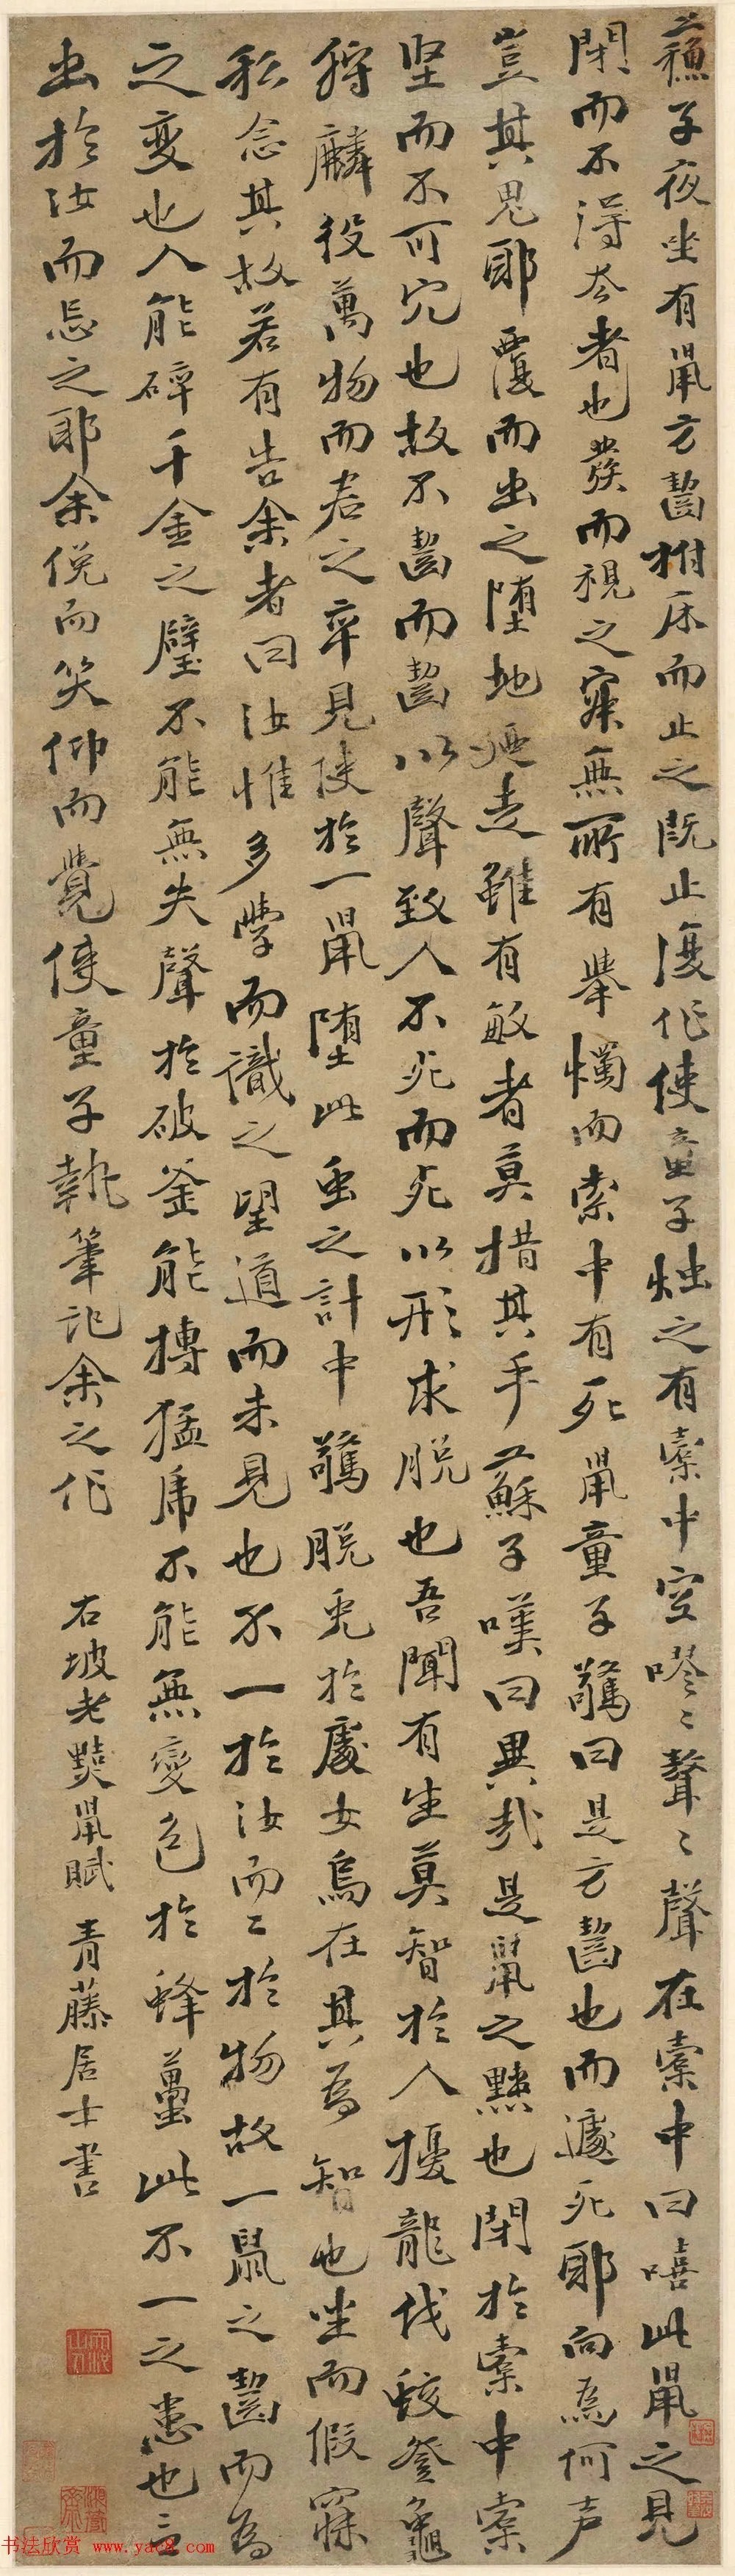 蘇子夜坐有鼠方齧拊床而止之既止復作使童子燭之有橐中空嘐〻聱〻聲在橐中曰嘻此鼠之見
閉而不得去者也發而視之寂無所有舉燭而索中有死鼠童子驚曰是方齧也而遽死耶向為何声
豈其鬼耶覆而出之墮地廼走雖有敏者莫措其手蘇子嘆曰異哉是鼠之黠也閉於橐中橐
坚而不可穴也故不齧而齧以聲致人不死而死以形求脱也吾聞有生莫智於人擾龍伐蛟登龜
狩麟役萬物而君之卒見使於一鼠墮此虫之計中驚脱兎於處女烏在其為智也坐而假寐
私念其故若有告余者曰汝惟多學而識之望道而未見也不一於汝而二於物故一鼠之齧而為
之变也人能碎千金之璧不能無失聲於破釜能搏猛虎不能無變色於蜂蠆此不一之患也言
出於汝而忘之耶余俛而笑仰而覺使童子執筆記余之作
右坡老黠鼠賦 青藤居士書
书法欣赏 www.yac8.com